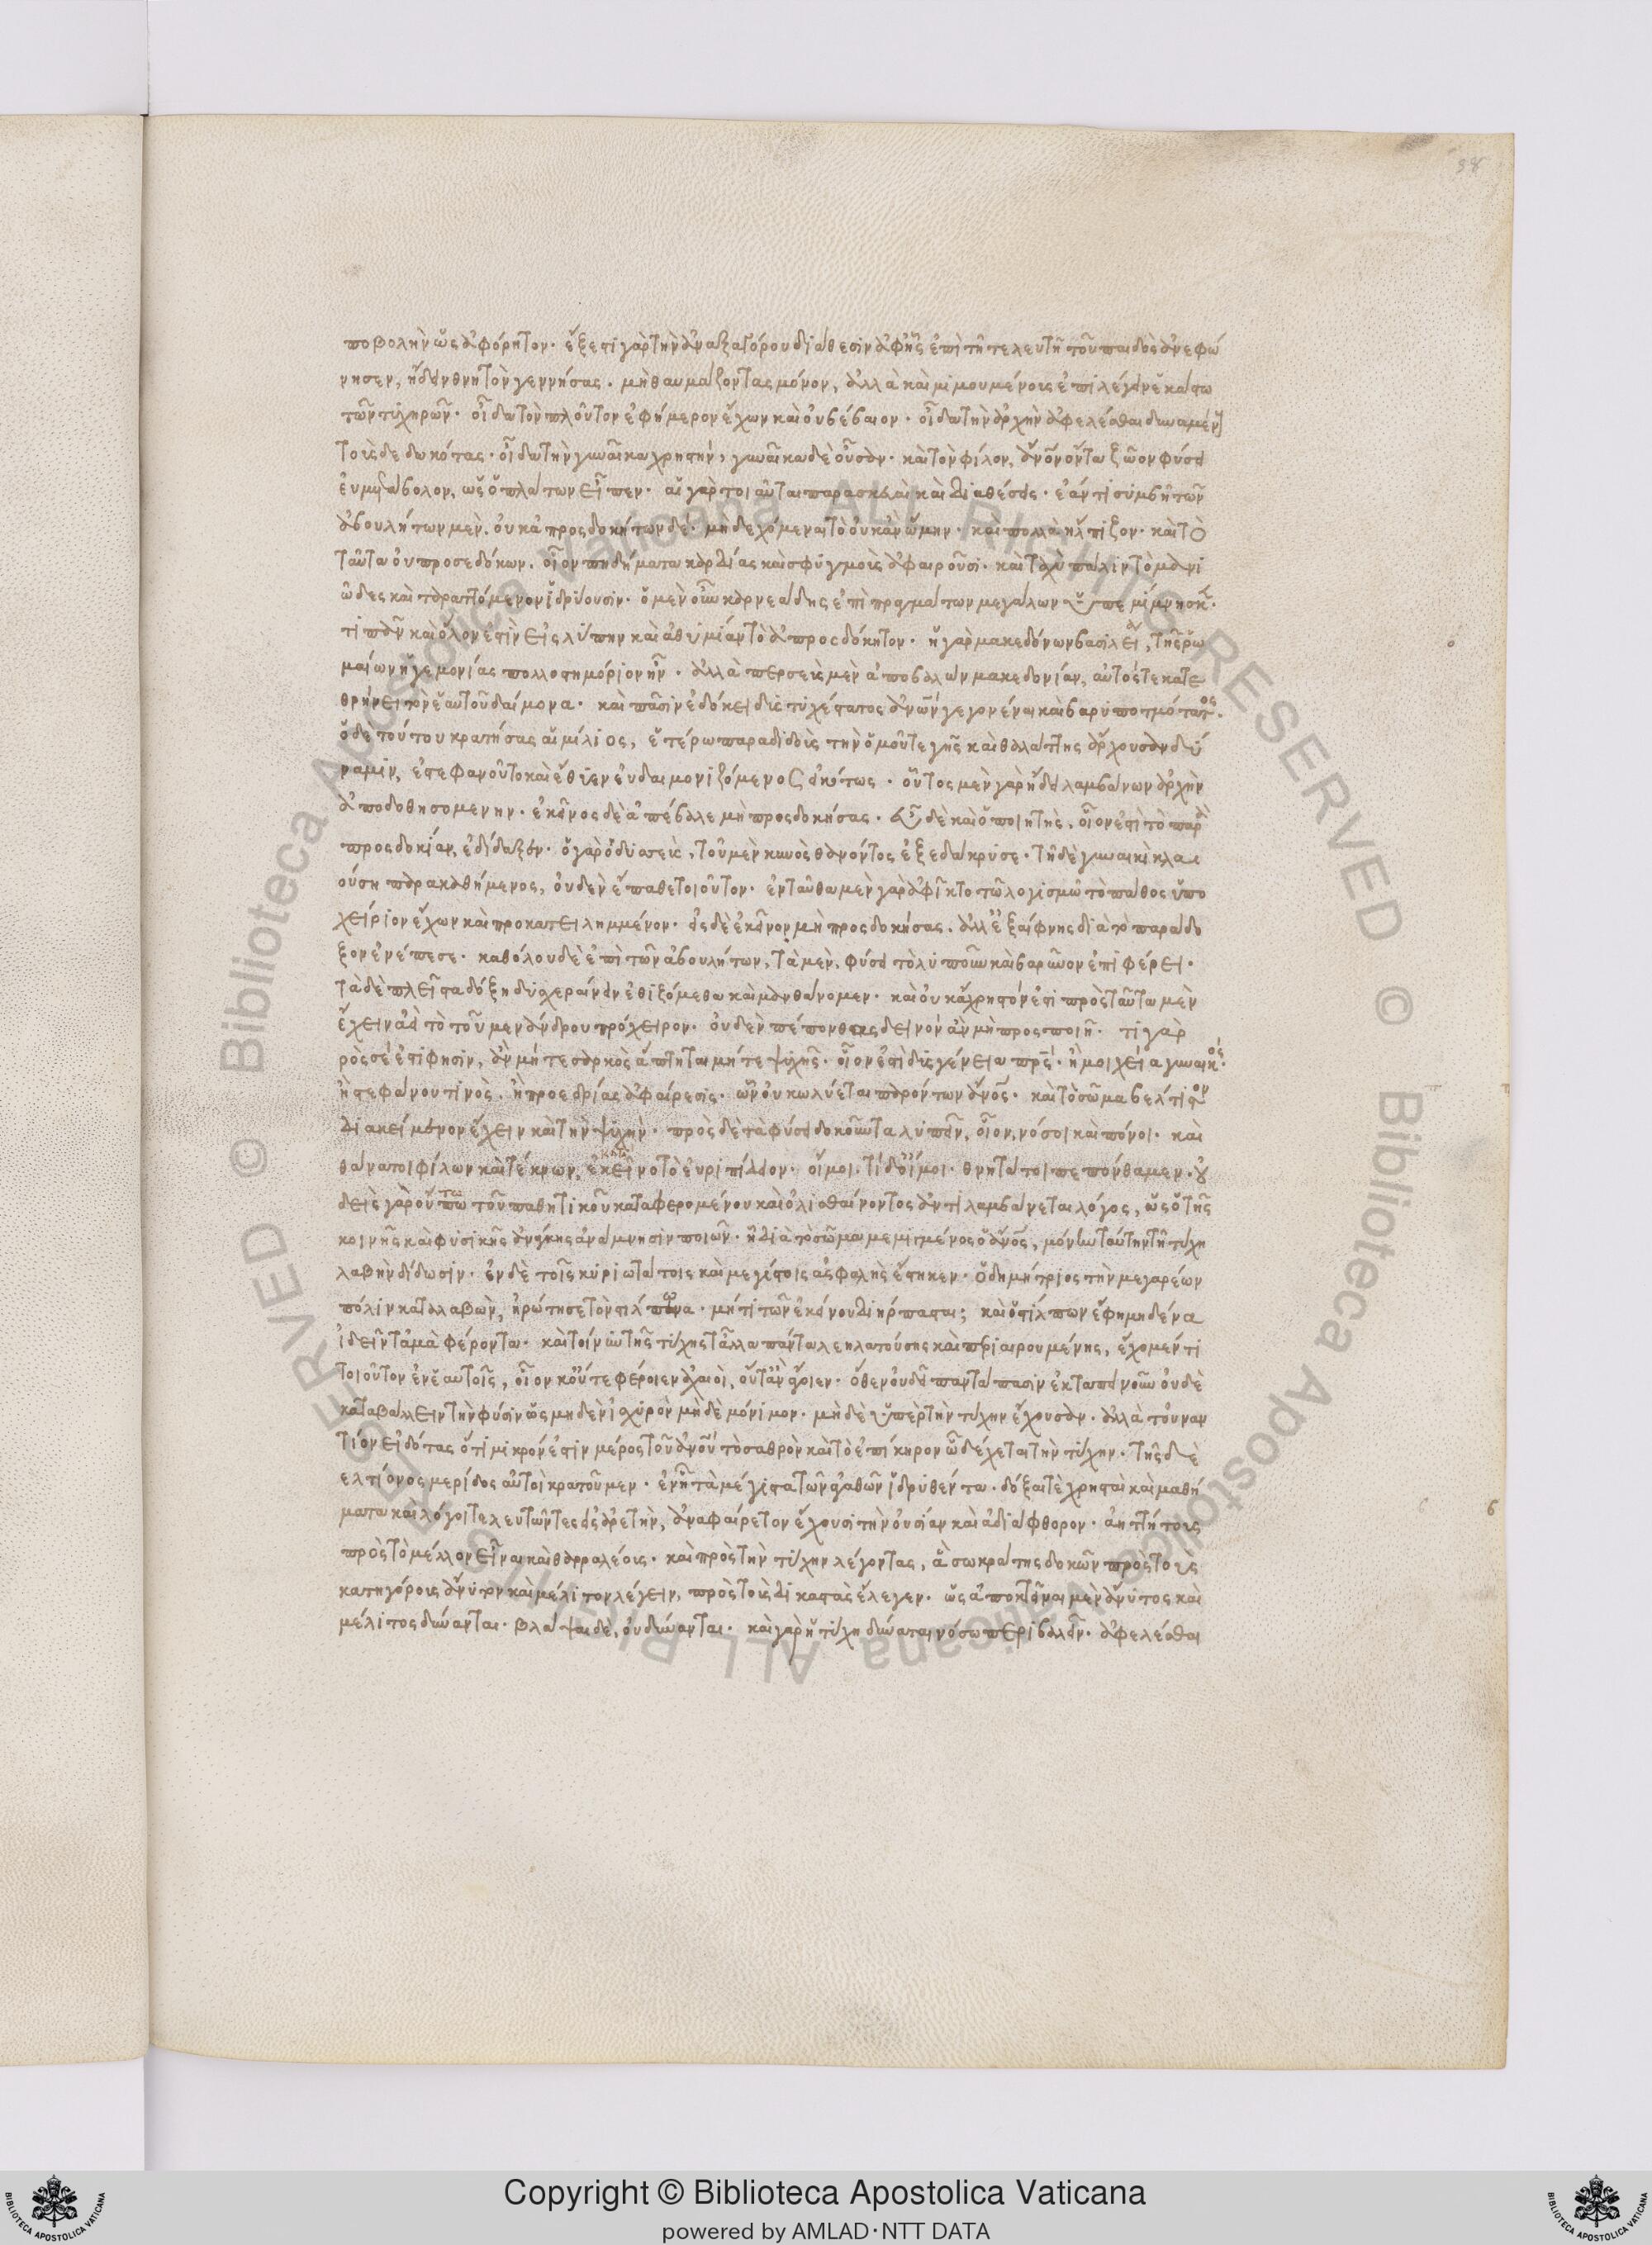 38
ποβολὴν ὡς ἀφόρητον. ἔξεστι γὰρ τὴν ἀναξαγόρου διάθεσιν ἀφ' ἧς ἐπὶ τῆ τελευτῆ τοῦ παιδὸς ἀνεφώ
νησεν, ἤδειν θνητὸν γεννήσας. μὴ θαυμάζοντας μόνον, ἀλλὰ καὶ μιμουμένοις ἐπιλέγειν ἑκάστω
τῶν τυχηρῶν. οἶδα τὸν πλοῦτον ἐφήμερον ἔχων καὶ οὐ βέβαιον. οἶδα τὴν ἀρχὴν ἀφελέσθαι δυναμέν
τοὺς δεδωκότας. οἶδα τὴν γυναῖκα χρηστήν, γυναῖκα δὲ οὖσαν. καὶ τὸν φίλον, ἄνον ὄντα ζῶον φύσει
εὐμετάβολον, ὡς ὁ πλάτων εἶπεν. αἱ γὰρ τοιαῦται παρασκευαὶ καὶ διαθέσεις. ἐάν τι συμβῆ τῶν
ἀβουλήτων μὲν. οὐκ ἀπροσδοκήτων δέ. μὴ δεχόμεναι τὸ οὐκ ἂν ὤμην. καὶ πολλὰ ἤλπιζον. καὶ τὸ
ταῦτα οὐ προσεδόκων. οἷον πηδήματα καρδίας καὶ σφυγμοὺς ἀφαιροῦσι. καὶ ταχὺ πάλιν τὸ μανι
ῶδες καὶ ταραττόμενον ἱδρύουσιν. ὁ μὲν οὖν καρνεάδης ἐπὶ πραγμάτων μεγάλων ὑπεμίμνησκ.
τι πᾶν καὶ ὅλον ἐστὶν εἰς λύπην καὶ ἀθυμίαν τὸ ἀπροσδόκητον. ἡ γὰρ μακεδόνων βασιλεία, τῆς ῥω
μαίων ἡγεμονίας πολλοστημόριον ἦν. ἀλλὰ περσεὺς μὲν ἀποβαλὼν μακεδονίαν, αὐτός τε κατε
θρήνει τὸν ἑαυτοῦ δαίμονα. καὶ πᾶσιν ἐδόκει δυστυχέστατος ἀνῶν γεγονέναι καὶ βαρυποτμότατος.
ὁ δὲ τούτου κρατήσας αἰμίλιος, ἑτέρω παραδιδοὺς τὴν ὁμοῦ τε γῆς καὶ θαλάττης ἄρχουσαν δύ
ναμιν, ἐστεφανοῦτο καὶ ἔθυεν εὐδαιμονιζόμενος εἰκότως. οὗτος μὲν γὰρ ἤδει λαμβάνων ἀρχὴν
ἀποδοθησομενην. ἐκεῖνος δὲ ἀπέβαλε μὴ προσδοκήσας. εὖ δὲ καὶ ὁ ποιητὴς. οἷόν ἐστι τὸ παρὰ
προσδοκίαν, ἐδίδαξεν. ὁ γὰρ ὀδυσσεὺς, τοῦ μὲν κυνὸς θανόντος ἐξεδάκρυσε. τῆ δὲ γυναικὶ κλαι
ούση παρακαθήμενος, οὐδὲν ἔπαθε τοιοῦτον. ἐνταῦθα μὲν γὰρ ἀφῖκτο τῶ λογισμῶ τὸ πάθος ὑπο
χείριον ἔχων καὶ προκατειλημμένον. εἰς δὲ ἐκεῖνον μὴ προσδοκήσας. ἀλλ' ἐξαίφνης διὰ τὸ παράδο
ξον ἐνέπεσε. καθόλου δὲ ἐπὶ τῶν ἀβουλήτων, τὰ μὲν, φύσει τὸ λυποῦν καὶ βαρῦνον ἐπιφέρει.
τὰ δὲ πλεῖστα δόξη δυσχεραίνειν ἐθιζόμεθα καὶ μανθάνομεν. καὶ οὐκ ἄχρηστόν ἐστι πρὸς ταῦτα μὲν
ἔχειν ἀεὶ τὸ τοῦ μενάνδρου πρόχειρον. οὐδὲν πέπονθας δεινὸν ἂν μὴ προσποιῆ. τί γὰρ
πρὸς σέ ἐστι φησὶν, ἂν μήτε σαρκὸς ἅπτηται μήτε ψυχῆς. οἷόν ἐστι δυσγένεια πρς. ἢ μοιχεία γυναικός.
ἢ στεφάνου τινὸς. ἢ προεδρίας ἀφαίρεσις. ὧν οὐ κωλύεται παρόντων ἄνος. καὶ τὸ σῶμα βέλτιστον
διακείμενον ἔχειν καὶ τὴν ψυχήν. πρὸς δὲ τὰ φύσει δοκοῦντα λυπεῖν, οἷον, νόσοι καὶ πόνοι. καὶ
θάνατοι φίλων καὶ τέκνων, ἐκεῖνο τὸ εὐριπίδειον. οἴμοι. τί δ' οἴμοι. θνητά τοι πεπόνθαμεν. οὐ
δεὶς γὰρ οὕτω τοῦ παθητικοῦ καταφερομένου καὶ ὀλισθαίνοντος ἀντιλαμβάνεται λόγος, ὡς ὁ τῆς
κοινῆς καὶ φυσικῆς ἀνάγκης ἀνάμνησιν ποιῶν. ἧ διὰ τὸ σῶμα μεμιγμένος ὁ ἄνος, μόνην ταύτην τῆ τύχη
λαβὴν δίδωσιν. ἐν δὲ τοῖς κυριωτάτοις καὶ μεγίστοις ἀσφαλὴς ἕστηκεν. ὁ δημήτριος τὴν μεγαρέων
πόλιν καταλαβὼν, ἠρώτησε τὸν στίλπωνα. μή τι τῶν ἐκείνου διήρπασται; καὶ ὁ στίλπων ἔφη μηδένα
ἰδεῖν τἀμὰ φέροντα. καὶ τοίνυν τῆς τύχης τἆλλα πάντα λεηλατούσης καὶ περιαιρουμένης, ἔχομέν τι
τοιοῦτον ἐν ἑαυτοῖς, οἷον κ' οὔτε φέροιεν ἀχαιοὶ, οὔτ' ἂν ἄγοιεν. ὅθεν οὐ δεῖ παντάπασιν ἐκταπεινοῦν οὐδὲ
καταβάλλειν τὴν φύσιν ὡς μηδὲν ἰσχυρὸν μὴ δὲ μόνιμον. μὴ δὲ ὑπὲρ τὴν τύχην ἔχουσαν. ἀλλὰ τοὐναν
τίον εἰδότας ὅτι μικρόν ἐστιν μέρος τοῦ ἀνου τὸ σαθρὸν καὶ τὸ ἐπίκηρον ὧ δέχεται τὴν τύχην. τῆς δὲ
ελτίονος μερίδος αὐτοὶ κρατοῦμεν. ἐν ἧ τὰ μέγιστα τῶν ἀγαθῶν ἱδρυθέντα. δόξαι τὲ χρησταὶ καὶ μαθή
ματα καὶ λόγοι τελευτῶντες εἰς ἀρετὴν, ἀναφαίρετον ἔχουσι τὴν οὐσίαν καὶ ἀδιάφθορον. ἀηττήτοις
πρὸς τὸ μέλλον εἶναι καὶ θαρραλέοις. καὶ πρὸς τὴν τύχην λέγοντας, ἃ σωκράτης δοκῶν πρὸς τοὺς
κατηγόρους ἄνυτον καὶ μέλιτον λέγειν, πρὸς τοὺς δικαστὰς ἔλεγεν. ὡς ἀποκτεῖναι μὲν ἄνυτος καὶ
μέλιτος δύνανται. βλάψαι δὲ, οὐ δύνανται. καὶ γὰρ ἡ τύχη δύναται νόσω περιβαλεῖν. ἀφελέσθαι
Copyright © Biblioteca Apostolica Vaticana
powered by AMLAD·NTT DATA